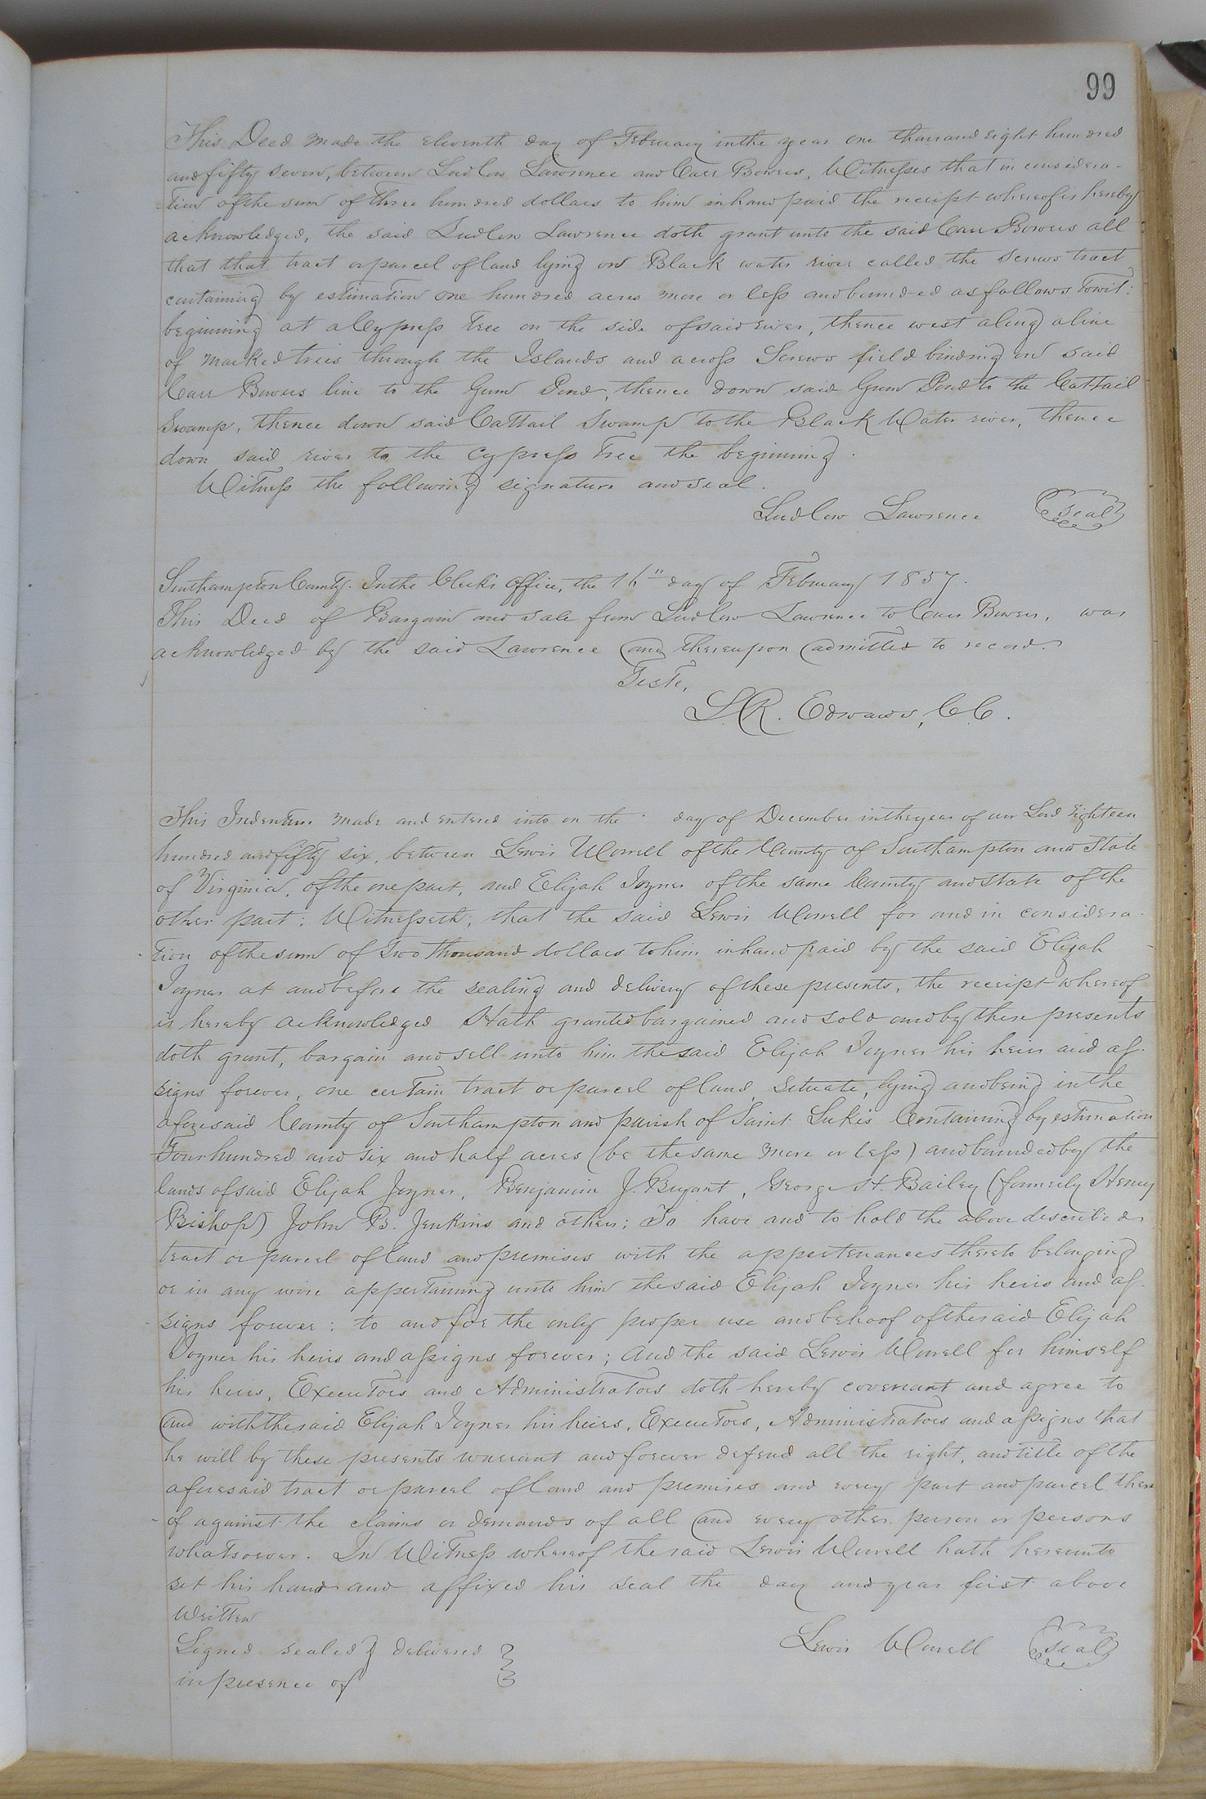 99
This Deed made the eleventh day of February in the year one thousand eight hundred
and fifty seven, between Ludlow Lawrence and Carr Bowers, Witnesses that in considera-
tion of the sum of three hundred dollars to him in hand paid the receipt whereof is hereby
acknowledged, the said Ludlow Lawrence doth grant unto the said Carr Bowers all
that that tract or parcel of land lying on Black water river called the Screws tract
containing by estimation one hundred acres more or less and bounded as follows Towit:
beginning at a Cypress Tree on the side of said river, thence west along a line
of marked trees through the Islands and across Screws field binding on said
Carr Bowers line to the Gum Pond, thence down said Gum Pond to the Cattail
Swamp, thence down said Cattail Swamp to the Black Water river, thence
down said river to the Cypress Tree the beginning.
Witness the following signature and seal.
Ludlow Lawrence seal
Southampton County. In the Clerk's Office, the 16" day of February 1857.
This Deed of Bargain and Sale from Ludlow Lawrence to Carr Bowers, was
acknowledged by the said Lawrence and thereupon admitted to record.
Teste,
L. R. Edwards, C.C.
This Indenture made and entered into on the day of December in the year of our Lord Eighteen
hundred and fifty six, between Lewis Worrell of the County of Southampton and State
of Virginia, of the one part, and Elijah Joyner of the same County and State of the
other part: Witnesseth, that the said Lewis Worrell for and in considera-
tion of the sum of Two thousand dollars to him in hand paid by the said Elijah
Joyner at and before the sealing and delivery of these presents, the receipt whereof
is hereby acknowledged Hath granted bargained and sold and by these presents
doth grant, bargain and sell unto him the said Elijah Joyner his heirs and as-
signs forever, one certain tract or parcel of land, situate, lying and being in the
aforesaid County of Southampton and parish of Saint Lukes Containing by estimation
Four hundred and six and half acres (be the same more or less) and bounded by the
lands of said Elijah Joyner, Benjamin J. Bryant, George H. Bailey (formerly Henry
Bishop) John B. Jenkins and others: To have and to hold the above described
tract or parcel of land and premises with the appertenances thereto belonging
or in any wise appertaining unto him the said Elijah Joyner his heirs and as-
signs forever: to and for the only proper use and behoof of the said Elijah
Joyner his heirs and assigns forever; And the said Lewis Worrell for himself
his heirs, Executors and Administrators doth hereby covenant and agree to
and with the said Elijah Joyner his heirs, Executors, Administrators and assigns that
he will by these presents warrant and forever defend all the right, and title of the
aforesaid tract or parcel of land and premises and every part and parcel there
of against the claims or demands of all and every other person or persons
whatsoever. In Witness whereof the said Lewis Worrell hath hereunto
set his hand and affixed his seal the day and year first above
written
Signed sealed & delivered Lewis Worrell seal
in presence of